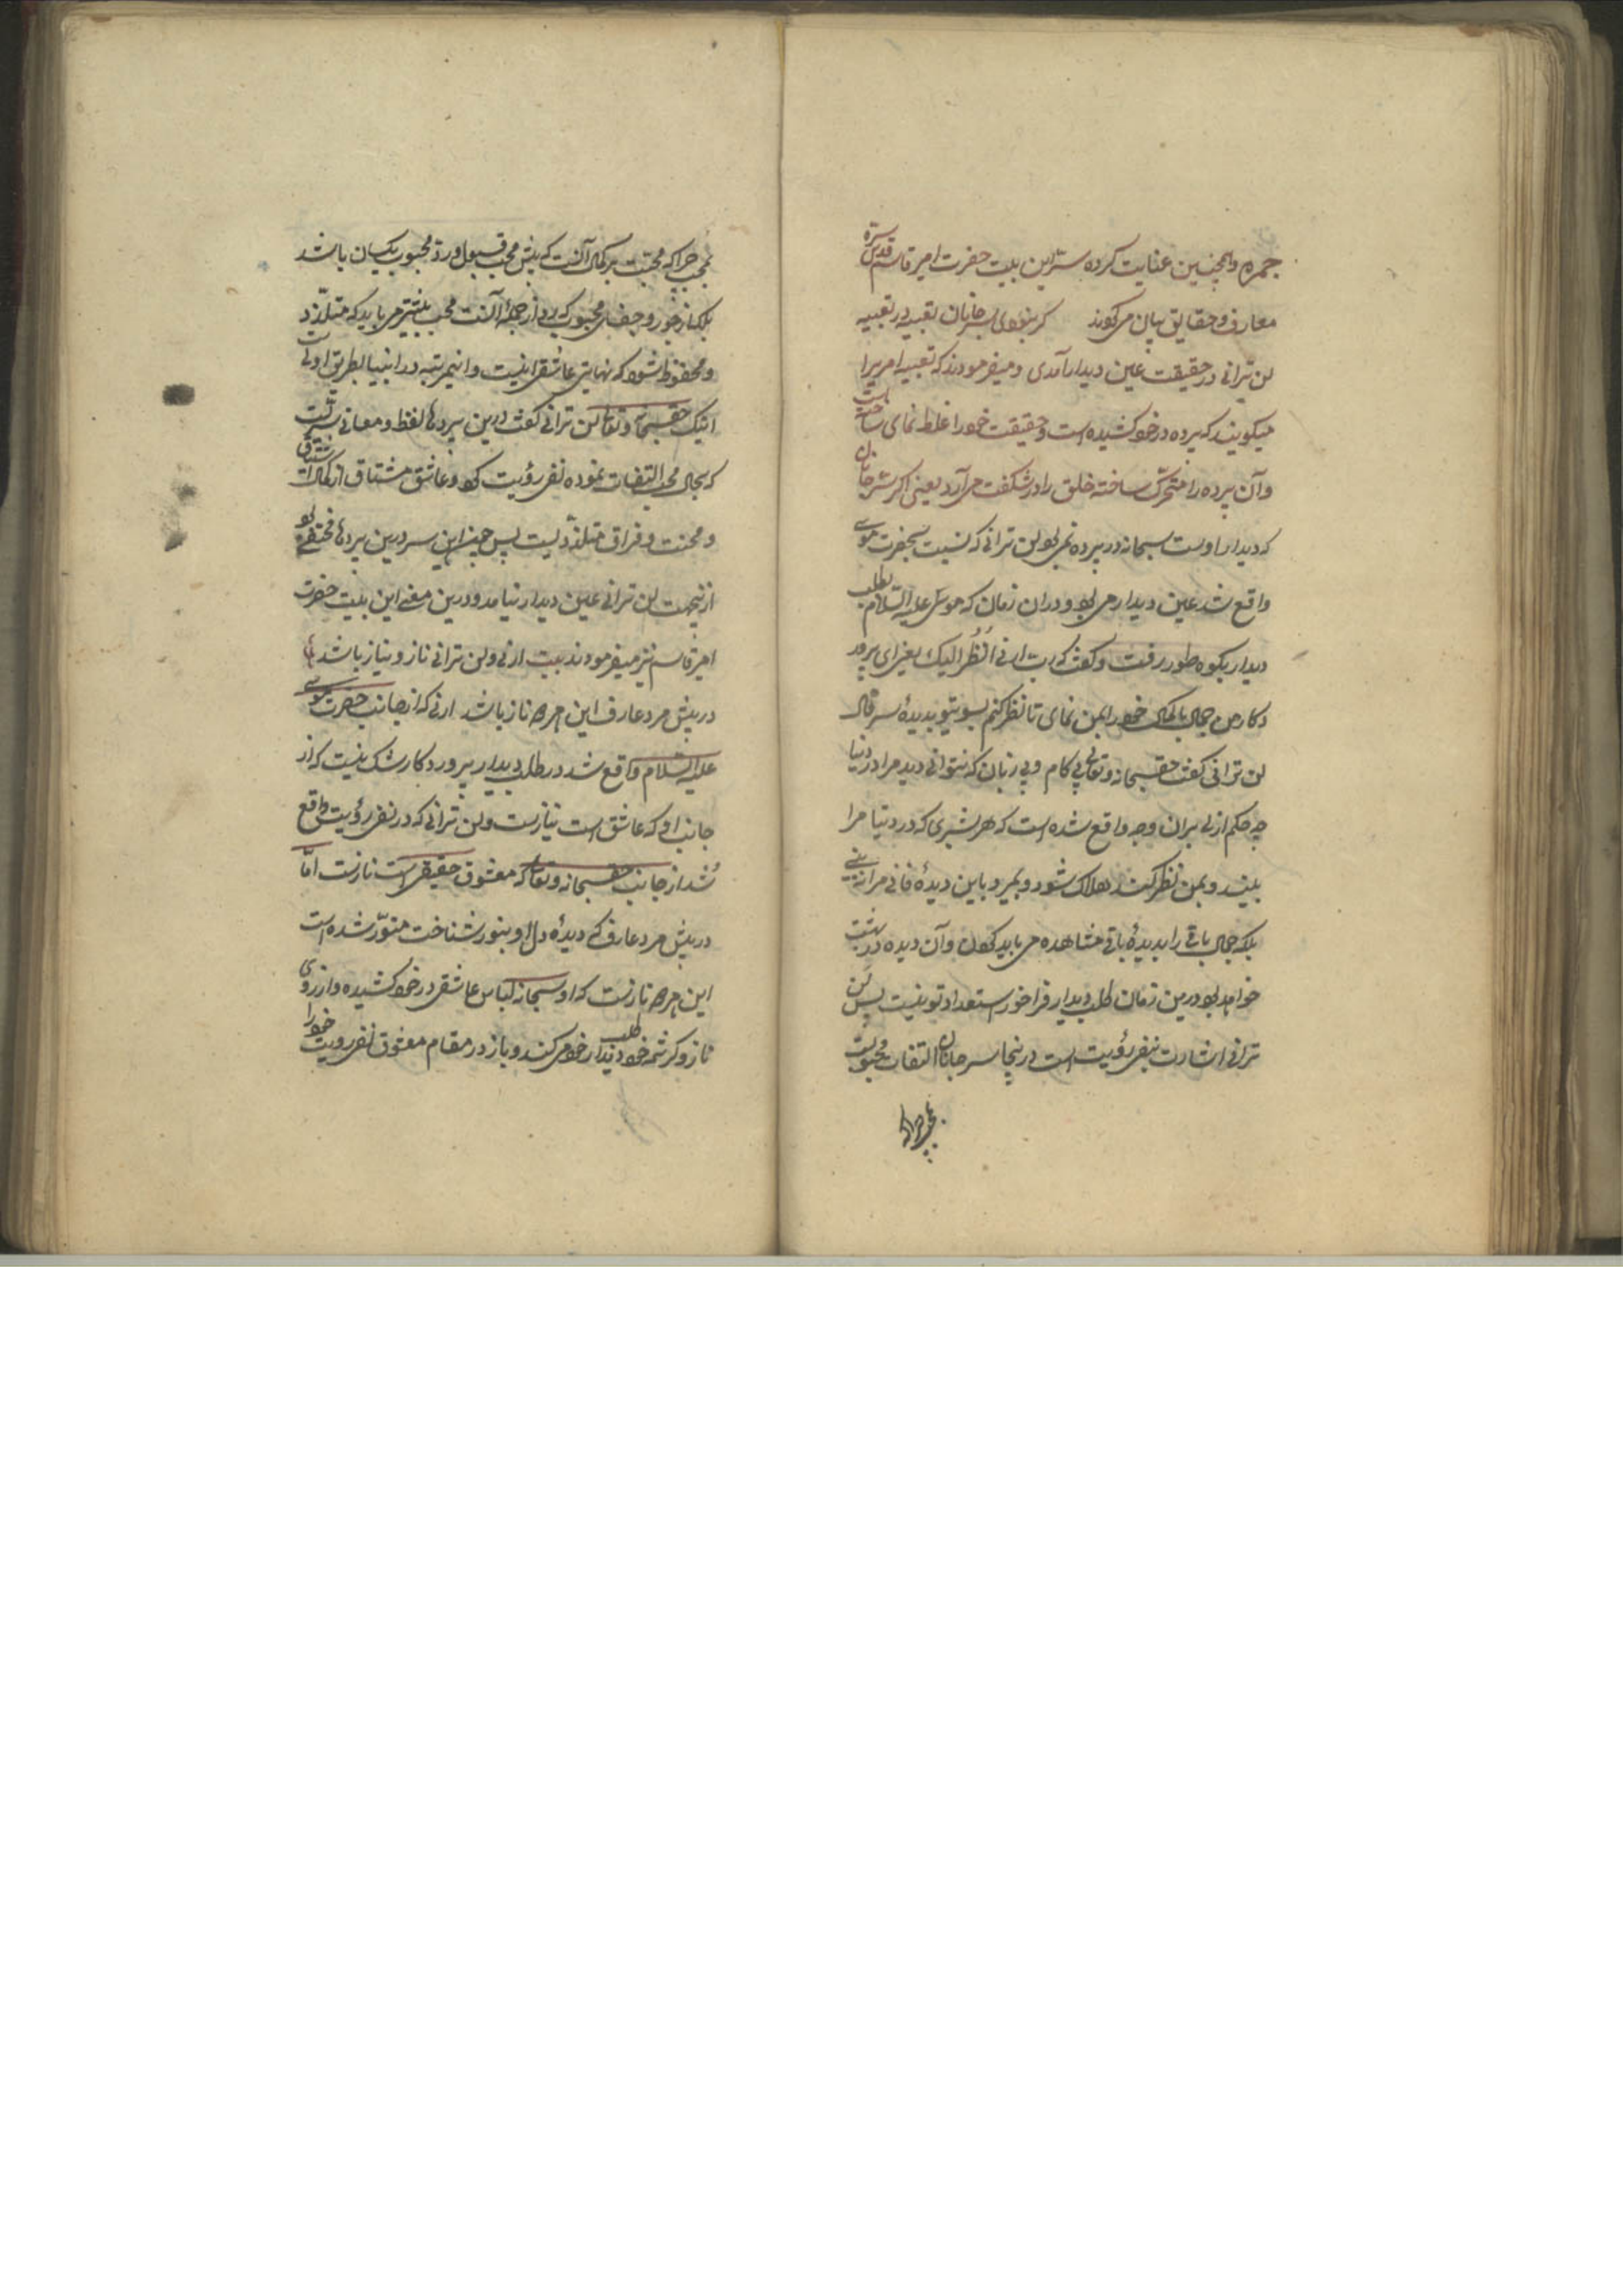 جمره و همچنین عنایت کرده ستر این بیت حضرت امیر قاسم قدس سره
معارف و حقایق بیان میکردند گر نبودی سر جانان تعبیه در تعبیه
لن ترانی در حقیقت عین دیدار آمدی و میفرمودند که تعبیه امریرا
میکویند که پرده در خود کشیده است و حقیقت خود را غلط نمای ساخته است
و آن پرده را متحرک ساخته خلق را در شکفت می آرد یعنی اکر سر جانان
که دیدار اوست سبحانه در پرده نمی بود لن ترانی که نسبت بحضرت موسی
واقع شد عین دیدار می بود و دران زمان که موسی علیه السلام بطلب
دیدار بکوه طور رفت و کفت که رب ارنی انظر الیک یعنی ای پرور
دکار من جمال باکمال خود را بمن نمای تا نظر کنم بسوی تو بدیدهٔ سر قال
لن ترانی کفت حق سبحانه و تعالی بی کام و بی زبان که نتوانی دید مرا در دنیا
چه حکم ازلی بران وجه واقع شده است که هر بشری که در دنیا مرا
بیند و بمن نظر کند هلاک شود و بمیرد باین دیدهٔ فانی مرا نه بینی
بلکه جمال باقی را بدیدهٔ باقی مشاهده می باید کردن و آن دیده در بهشت
خواهد بود درین زمان طلب دیدار فراخور استعداد تو نیست پس لن
ترانی اشارت بنفی رؤیت است درینجا سر جانان التفات محبوبیت
بمحب چرا که
بمحب چرا که محبت بر کمال آنست که پیش محب قبول و رد محبوب یکسان باشد
بلکه از جور و جفای محبوب که رد از جمله آنست محب بیشتر می باید که متلذذ
و محظوظ شود که نهایت عاشقی اینست و این مرتبه در انبیا بطریق اولی است
اینک حق سبحانه و تعالی لن ترانی کفت درین پردهای لفظ و معانی سریست
که بحال محب التفات نموده نفی رؤیت کرد و عاشق مشتاق از کمال اشتیاق
و محنت و فراق متلذذیست پس چون این سر درین پردها مختفی بود
ازینجهت لن ترانی عین دیدار نیامد و درین معنی این بیت حضرت
امیر قاسم نیز میفرمودند بیت ارنی و لن ترانی ناز و نیاز باشد
در پیش مرد عارف این هر دو ناز باشد ارنی که از جانب حضرت موسی
علیه السلام واقع شد در طلب دیدار پرورد کار شک نیست که از
جانب او که عاشق است نیازست و لن ترانی که در نفی رؤیت واقع
شد از جانب حق سبحانه و تعالی که معشوق حقیقی است نازست اما
در پیش مرد عارف که دیدهٔ دل او بنور شناخت منور شده است
این هر دو نازست که او سبحانه لباس عاشقی در خود کشیده و از روی
ناز و کرشمه خود طلب دیدار خود می کند و باز در مقام معشوقی نفی رویت خود را